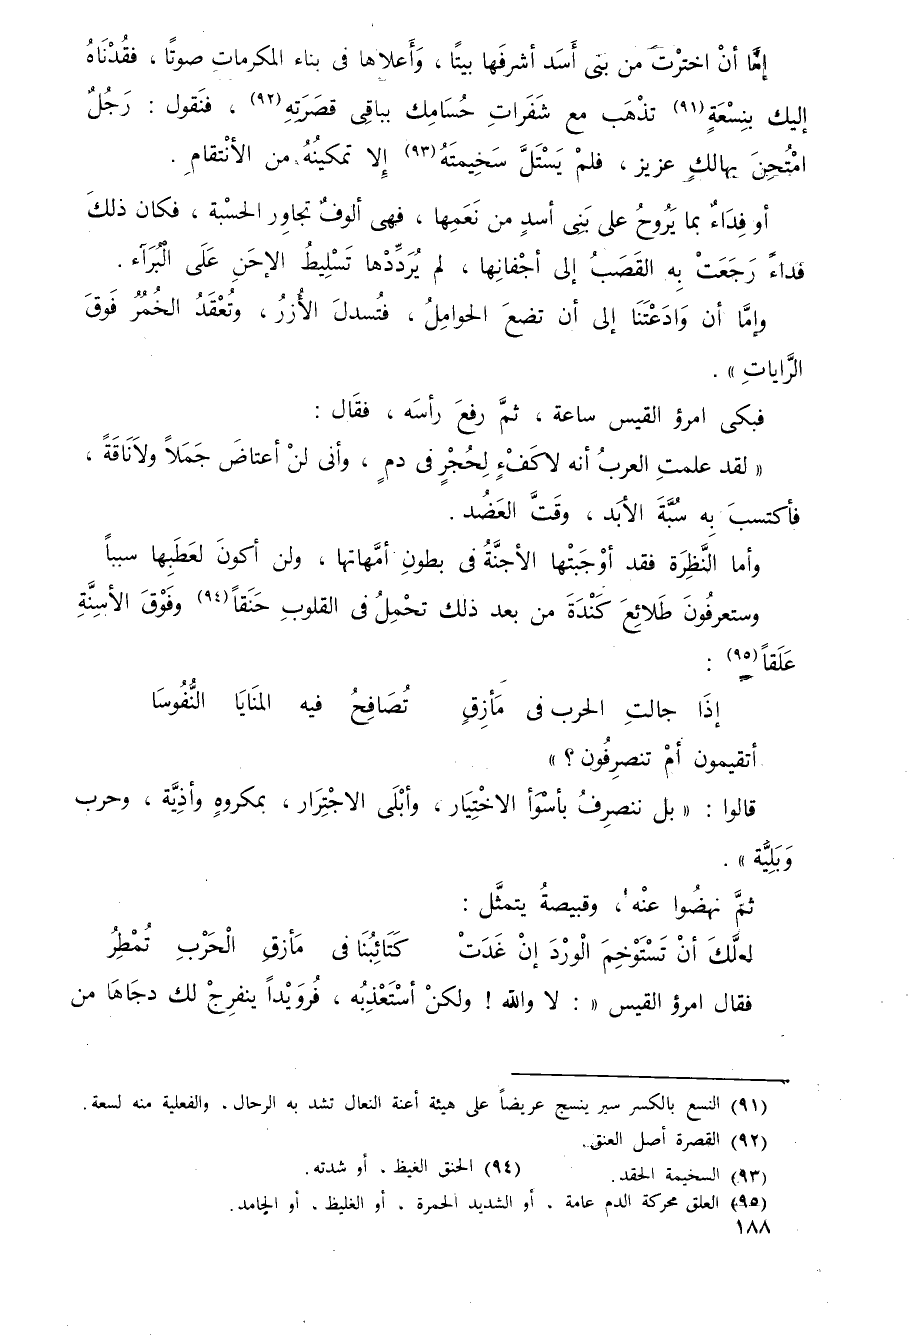 إمَّا أنْ اخترْتَ من بَنى أَسَد أشرفَها بيتًا ، وَأَعلاها فى بناء المكرمات صوتًا ، فقُدْنَاهُ
إليك بنِسْعَةٍ (٩١) تذْهَب مع شَفَراتِ حُسَامِك بباقِى قصَرَتِهِ (٩٢) ، فنَقول : رَجُلٌ
امْتُحِنَ بهالكٍ عزيز ، فلمْ يَسْتَلَّ سَخِيمتَهُ (٩٣) إِلا تمكينُهُ من الأنْتقامِ .
أو فِدَاءٌ بما يَرُوحُ على بَنِى أسدٍ من نَعَمِها ، فهى ألوفٌ تجاور الحسْبة ، فكان ذلكَ
فداءً رَجَعَتْ به القَصَبُ إلى أجْفانِها ، لم يُرَدِّدْها تَسْلِيطُ الإحَنِ عَلَى الْبُرَآء .
وإمَّا أن وَادَعْتَنَا إلى أن تضعَ الحوامِلُ ، فتُسدلَ الأُزرُ ، وتُعْقَدُ الخُمُرُ فَوقَ
الرَّاياتِ » .
فبكى امرؤ القيس ساعة ، ثمَّ رفعَ رأسَه ، فقَال :
« لقد علمتِ العربُ أنه لاكَفْءٍ لِحُجْرٍ فى دمٍ ، وأنى لنْ أعتاضَ جَمَلاً ولاَنَاقَةً ،
فأكتسبَ بِه سُبَّةَ الأبَد ، وفَتَّ العَضُد .
وأما النَّظِرَة فقد أوْجَبَتْها الأجنَّةُ فى بطونِ أمَّهاتها ، ولن أكونَ لعَطَبِها سبباً
وستعرفُونَ طَلائِعَ كَنْدَةَ من بعد ذلك تحْمِلُ فى القلوبِ حَنَقاً (٩٤) وفَوْقَ الأسِنَّةِ
عَلَقاً (٩٥) :
إذَا جالتِ الحرب فى مَأزِقٍ تُصَافِحُ فيه المنَايَا النُّفُوسَا
أتقيمون أمْ تنصرِفُون ؟ »
قالوا : « بل ننصرِفُ بأسْوَأ الاخْتِيَار ، وأبْلَى الاجْتِرَار ، بمكروهٍ وأذِيَّة ، وحرب
وَبَلِيَّة » .
ثمَّ نهضُوا عنْه ، وقبيصةُ يتمثَّل :
لعلَّكَ أنْ تَسْتَوْخِمَ الْوِرْدَ إنْ غَدَتْ كَتَائِبُنَا فى مَأزقِ الْحَرْبِ تُمْطِرُ
فقال امرؤ القيس « : لا والله ! ولكنْ أسْتَعْذِبُه ، فُرَوَيْداً ينفرِجْ لك دجَاهَا من
(٩١) النسع بالكسر سير ينسج عريضاً على هيئة أعنة النعال تشد به الرحال . والفعلية منه لسعة .
(٩٢) القصرة أصل العنق .
(٩٣) السخيمة الحقد . (٩٤) الحنق الغيظ . أو شدته .
(٩٥) العلق محركة الدم عامة . أو الشديد الحمرة . أو الغليظ . أو الجامد .
١٨٨